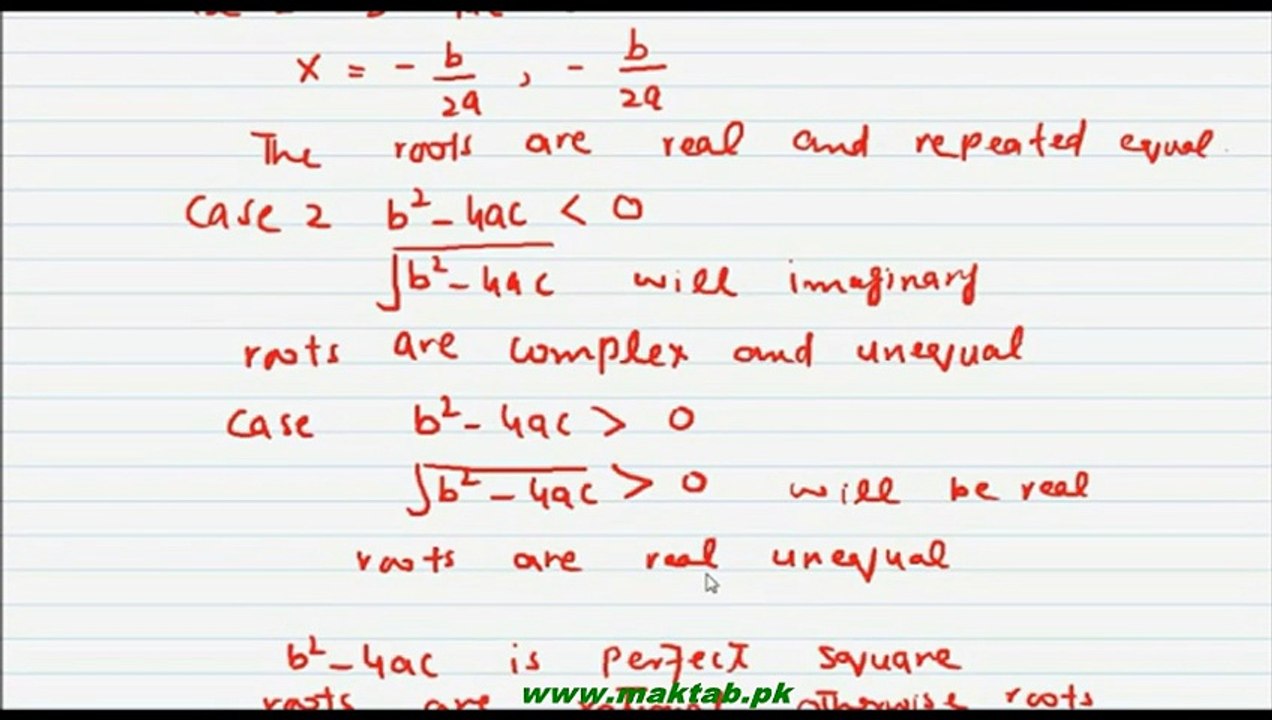 x = - b/2a , - b/2a
The roots are real and repeated equal.
Case 2 b² - 4ac < 0
√b² - 4ac will imaginary
roots are complex and unequal
Case b² - 4ac > 0
√b² - 4ac > 0 will be real
roots are real unequal
b² - 4ac is perfect square
roots are rational otherwise roots
www.maktab.pk